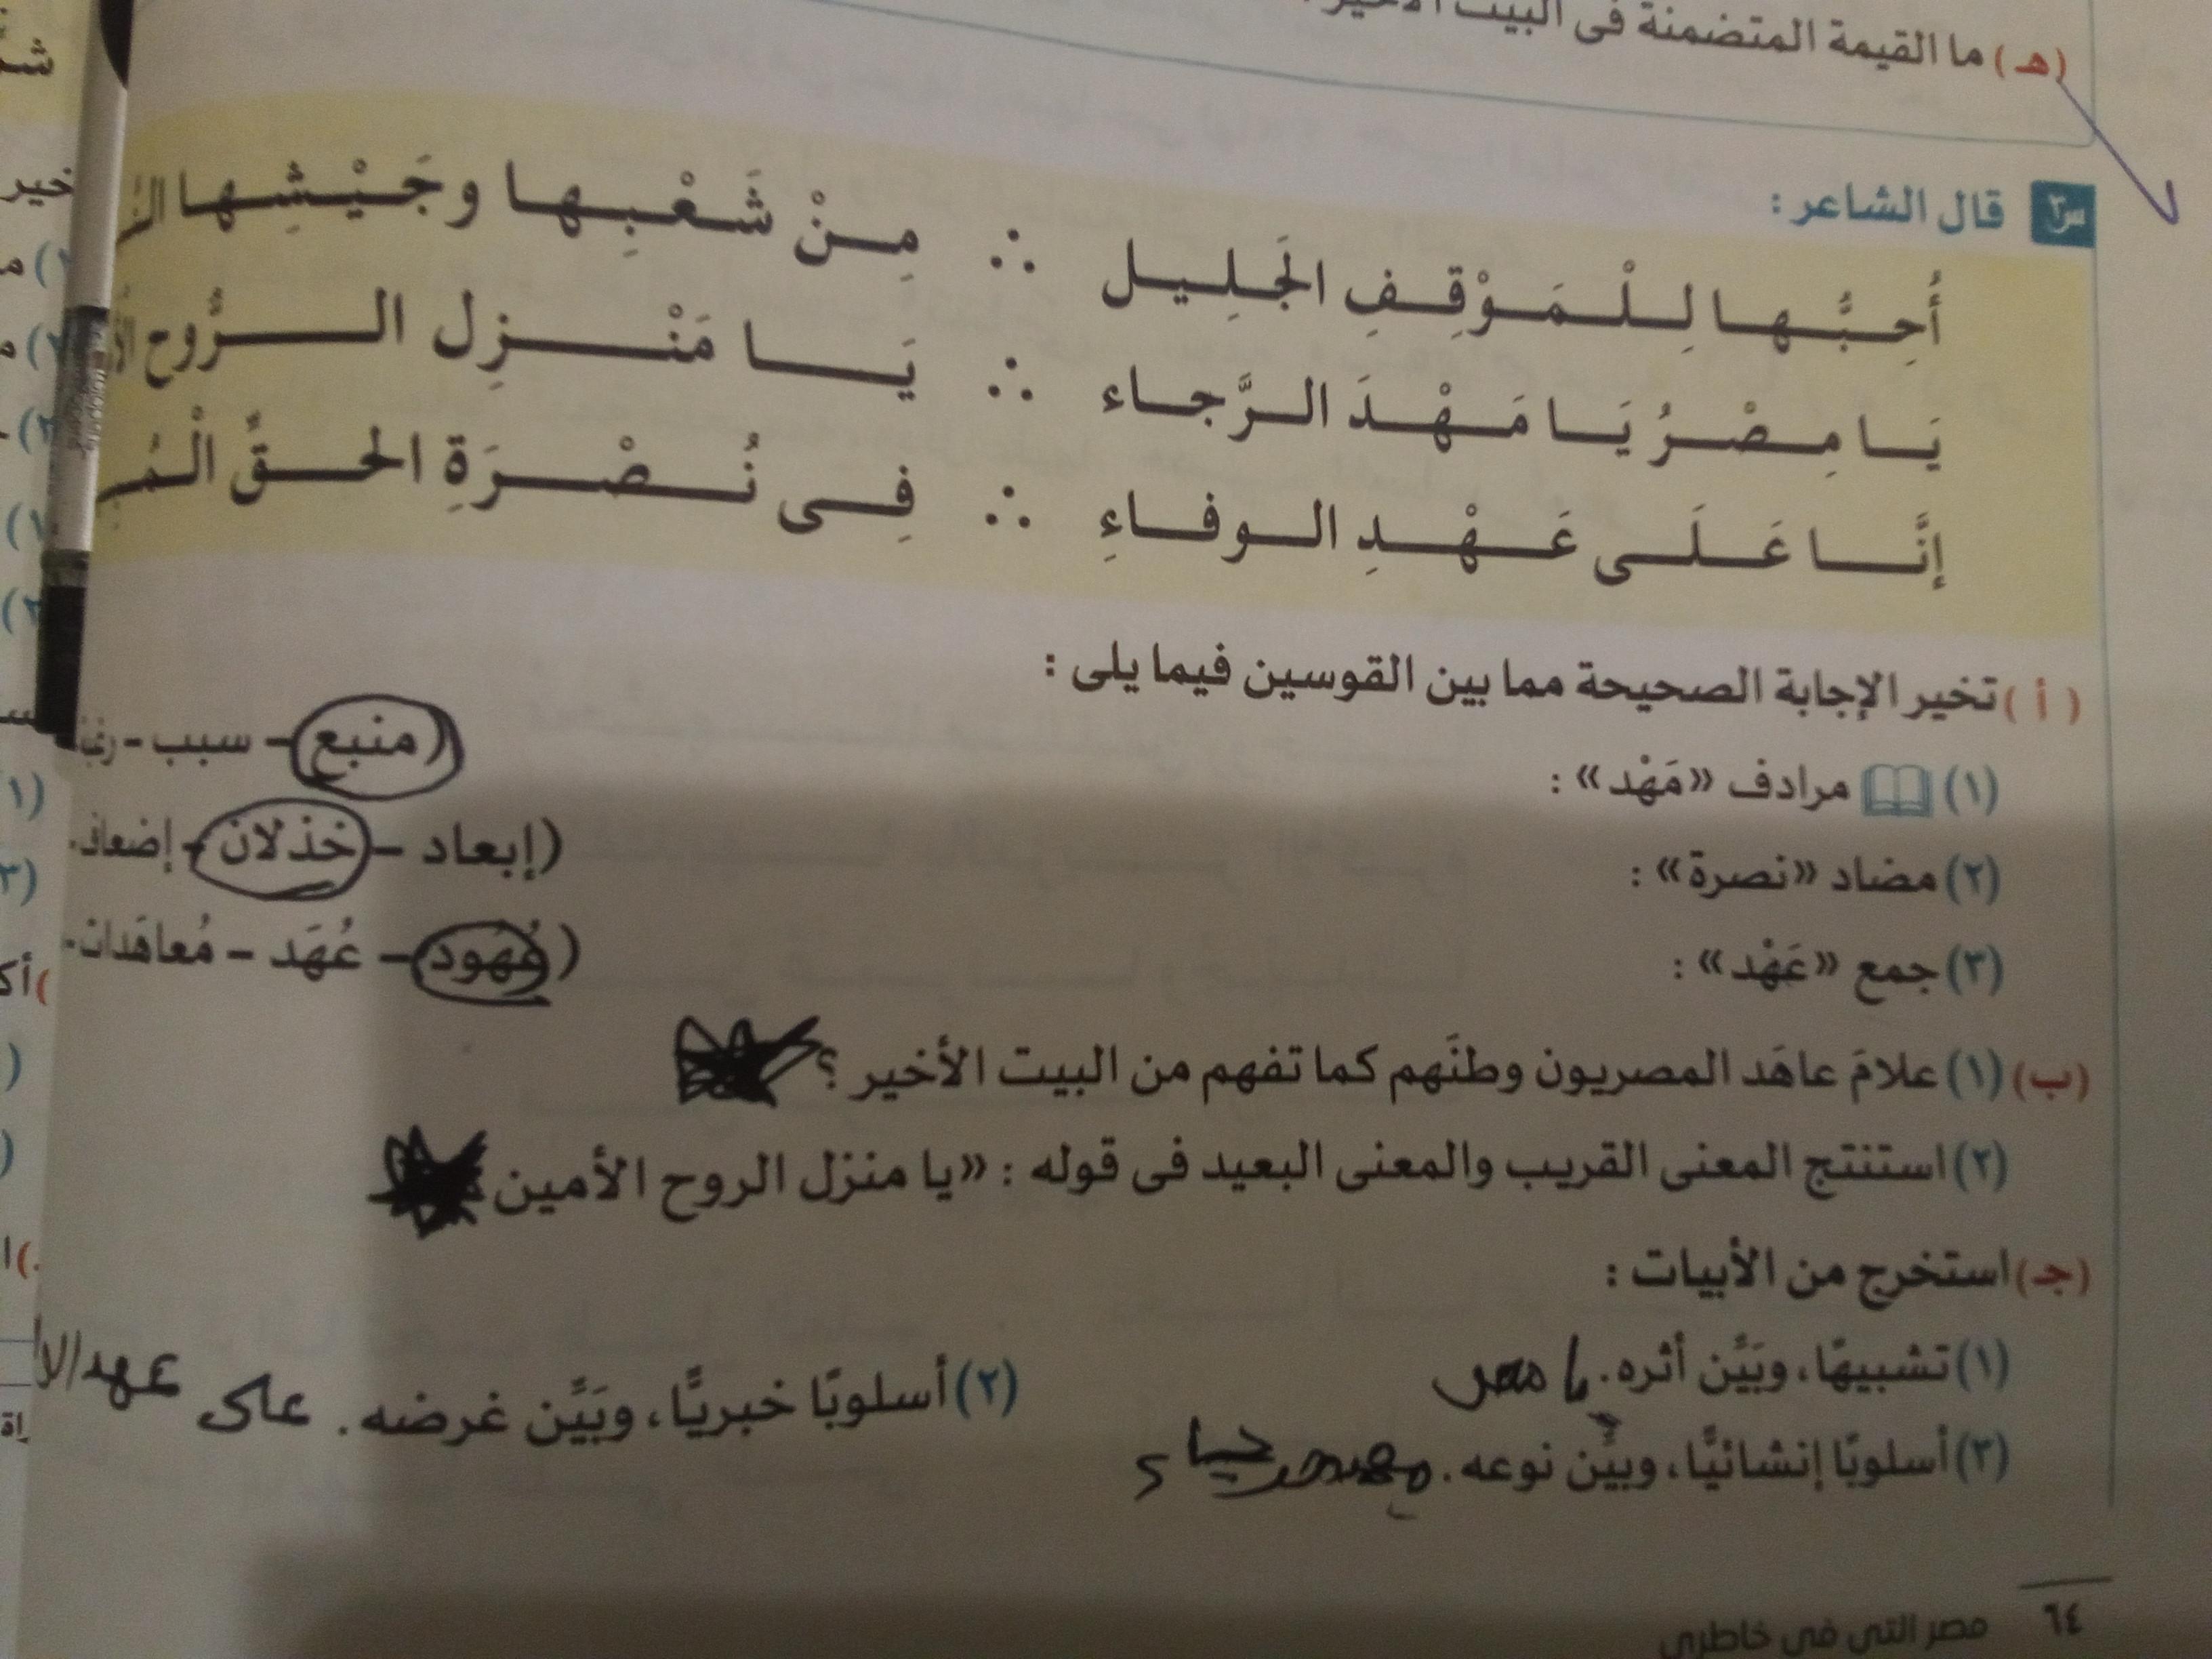 (هـ) ما القيمة المتضمنة فى البيت الأخير
س٣ قال الشاعر :
أُحِبُّها لِلْمَوْقِفِ الجَلِيل ∴ مِنْ شَعْبِها وجَيْشِها
يَا مِصْرُ يَا مَهْدَ الرَّجاء ∴ يَا مَنْزِل الرُّوح
إنَّا عَلَى عَهْدِ الوفاءِ ∴ فِى نُصْرَةِ الحقِّ
(أ) تخير الإجابة الصحيحة مما بين القوسين فيما يلى :
(١) مرادف «مَهْد» : (منبع – سبب –
(٢) مضاد «نصرة» : (إبعاد – خذلان – إضعاف
(٣) جمع «عَهْد» : (عُهُود – عُهَد – مُعاهَدات
(ب) (١) علامَ عاهَد المصريون وطنَهم كما تفهم من البيت الأخير ؟
(٢) استنتج المعنى القريب والمعنى البعيد فى قوله : «يا منزل الروح الأمين
(جـ) استخرج من الأبيات :
(١) تشبيهًا، وبَيِّن أثره. يا مصر
(٢) أسلوبًا خبريًّا، وبَيِّن غرضه. على عهد
(٣) أسلوبًا إنشائيًّا، وبيِّن نوعه.
٦٤ مصر التي في خاطري